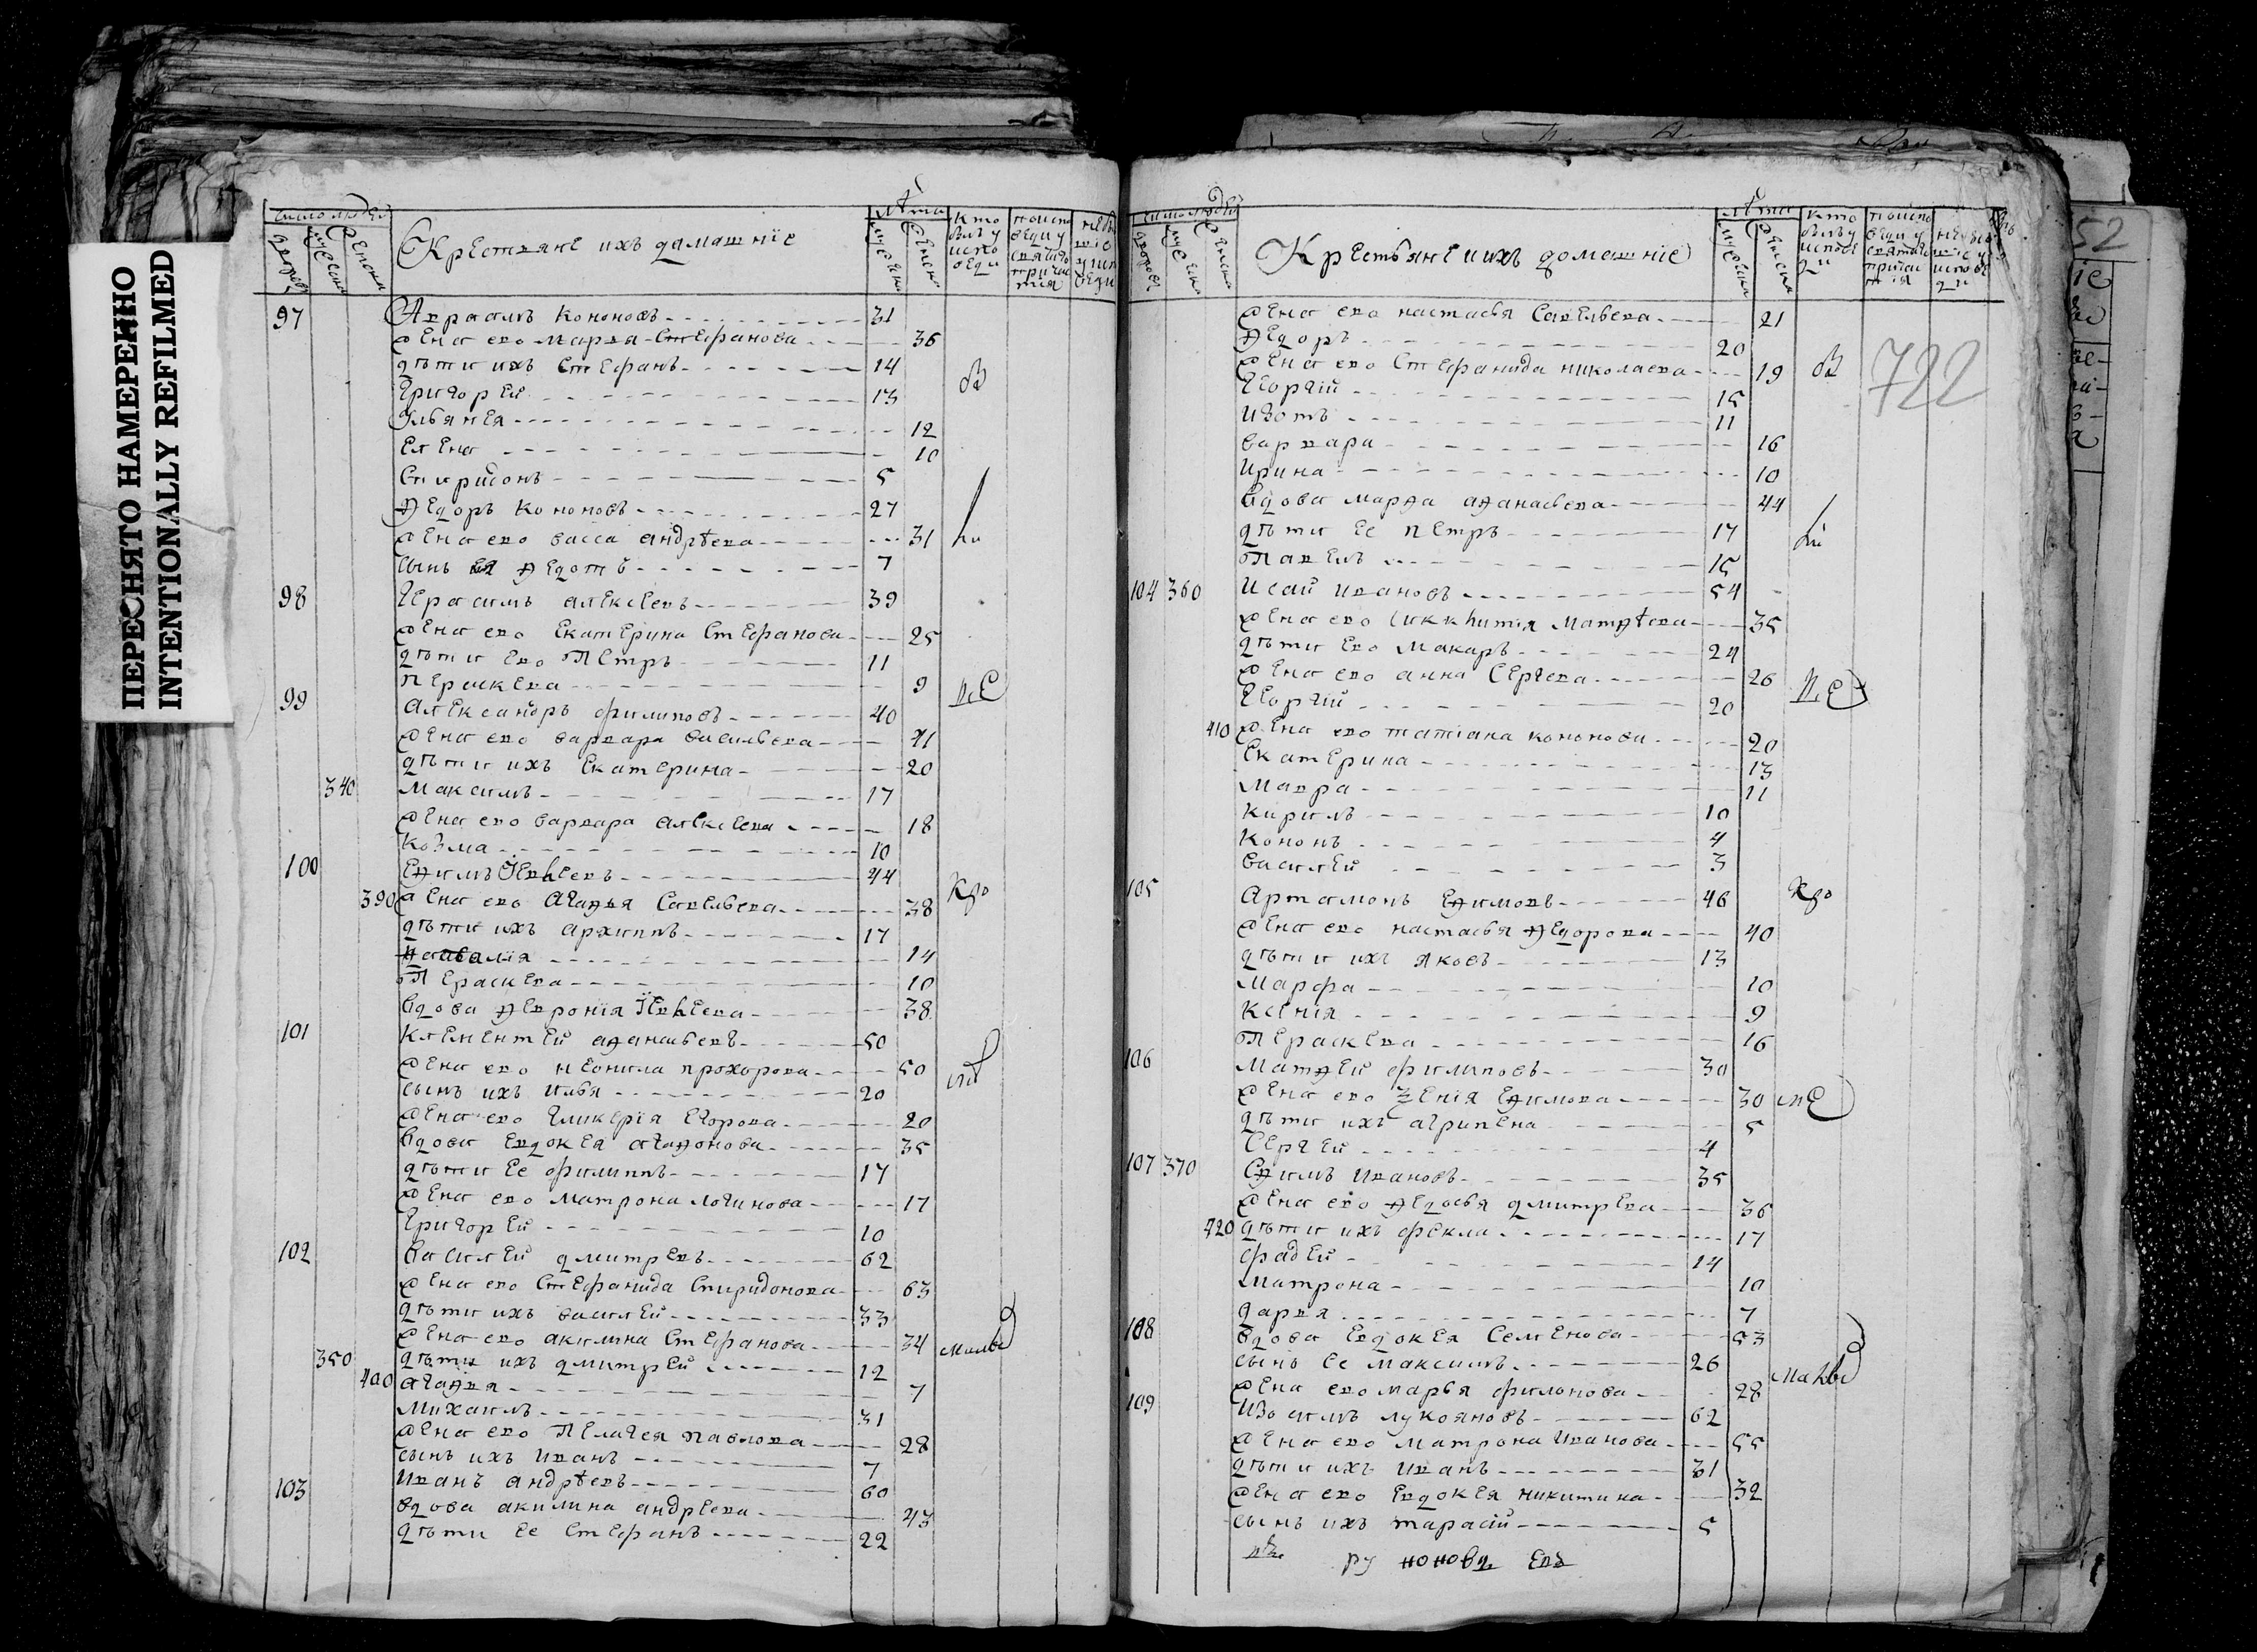 ПЕРЕСНЯТО НАМЕРЕННО
INTENTIONALLY REFILMED
число людей
дворовъ
мужеска
женска
Крестьяне ихъ дамашнїе
лѣта
мужеска
женска
кто былъ у исповеди
97 Авраамъ Кононовъ 31
жена ево Марья Стефанова 36
дѣти ихъ Стефанъ 14
Григорей 13
Ульянея 12
Елена 10
Спиридонъ 5
Ѳедоръ Кононовъ 27
жена ево васса андрѣева 31
сынъ Ѳедотъ 7
98 Герасимъ алексеевъ 39
жена ево Екатерина Стефанова 25
дѣти ево Петръ 11
Пераскева 9
99 Александръ филиповъ 40
жена ево варвара васильева 41
дѣти ихъ Екатерина 20
340 Максимъ 17
жена ево варвара алексеева 18
Козма 10
100 Еѳимъ Іевлевъ 44
390 жена ево Агаѳья Савельева 38
дѣти ихъ архиппъ 17
14
Пераскева 10
вдова Ѳевронїя Іевлева 38
101 Клементей аѳанасьевъ 50
жена ево неонила прохорова 50
сынъ ихъ илья 20
жена ево гликерїя Егорова 20
вдова Евдокея агаѳонова 35
дѣти ее филиппъ 17
жена ево матрона логинова 17
Григорей 10
102 василей дмитревъ 62
жена ево Стефанида Спиридонова 63
дѣти ихъ василей 33
жена ево акилина Стефанова 34
350 дѣти ихъ дмитрей 12
400 агаѳья 7
Михаилъ 31
жена ево Пелагея павлова 28
сынъ ихъ иванъ 7
103 иванъ андрѣевъ 60
вдова акилина андреева 43
дѣти ее стефанъ 22
число людей
дворовъ
мужеска
женска
Крестьяне и ихъ домашнїе
лѣта
мужеска
женска
кто былъ у исповеди
722
жена ево настасья Савельева 21
Ѳедоръ 20
жена ево Стефанида николаева 19
Георгїй 15
Изотъ 11
варвара 16
Ирина 10
вдова марѳа аѳанасьева 44
дѣти ее петръ 17
Павелъ 15
104 360 Исай ивановъ 54
жена ево Матѳѣева 35
дѣти ево Макаръ 24
жена ево анна Сергеева 26
Георгїй 20
410 жена ево татїана кононова 20
Екатерина 13
Мавра 11
Кирилъ 10
Кононъ 4
василей 3
105 Артамонъ Еѳимовъ 46
жена ево настасья Ѳедорова 40
дѣти ихъ яковъ 13
Марфа 10
Ксенїя 9
Пераскева 16
106 Матѳей филиповъ 30
жена ево Ѯенїя Еѳимова 30
дѣти ихъ агрипена 5
Сергей 4
107 370 Еѳимъ Ивановъ 35
жена ево Ѳедосья дмитрева 36
420 дѣти ихъ фекла 17
фадей 14
Матрона 10
дарья 7
108 вдова Евдокея Семенова 53
сынъ ее максимъ 26
жена ево марья филонова 28
109 Изосимъ лукояновъ 62
жена ево матрона иванова 55
дѣти ихъ иванъ 31
жена ево Евдокея никитина 32
сынъ ихъ тарасїй 5
52